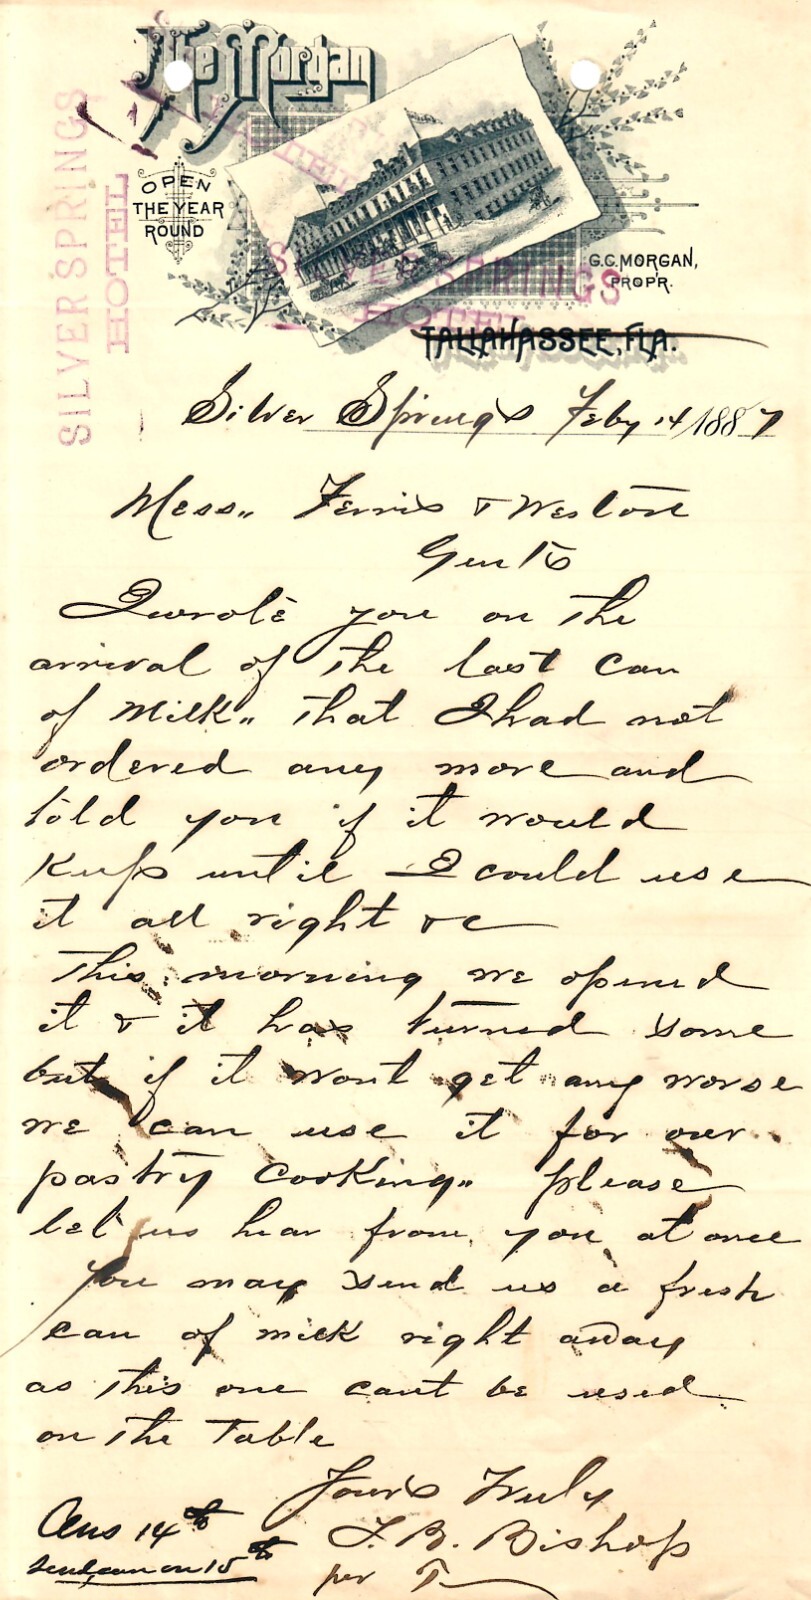 The Morgan
OPEN
THE YEAR
ROUND
G.C. MORGAN,
PROP'R.
TALLAHASSEE, FLA.
SILVER SPRINGS
HOTEL
SILVER SPRINGS
HOTEL
HOTEL
Silver Springs Feby 14 1887
Mess,, Ferris & Weston
Gents
I wrote you on the
arrival of the last can
of milk,, that I had not
ordered any more and
told you if it would
keep until I could use
it all right &c
This morning we opened
it & it has turned some
but if it wont get any worse
we can use it for our
pastry cooking,, please
let us hear from you at once
You may send us a fresh
can of milk right away
as this one cant be used
on the Table
Yours Truly
Ans 14th
J. B. Bishop
send can on 15th
per T